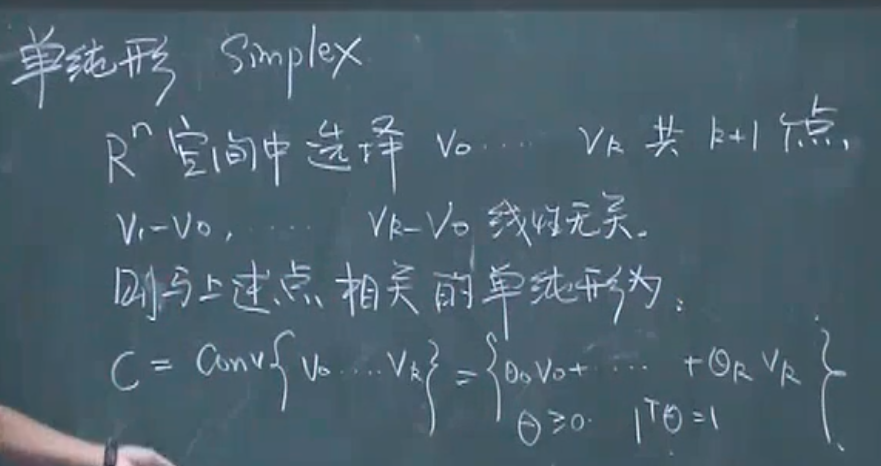 单纯形 Simplex
Rⁿ 空间中选择 v₀ ···· vₖ 共 k+1个点,
v₁-v₀, ····· vₖ-v₀ 线性无关.
则与上述点相关的单纯形为:
C = Conv{v₀ ···· vₖ} = {θ₀v₀+ ····· +θₖvₖ}
θ≥0. 1ᵀθ=1